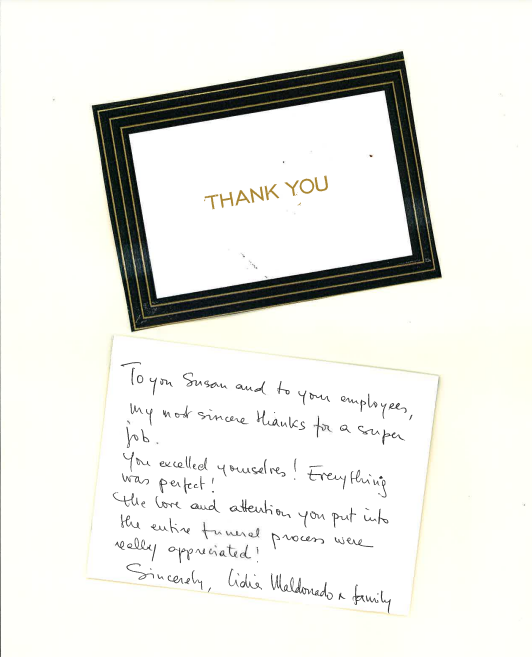 THANK YOU
To you Susan and to your employees,
my most sincere thanks for a super
job.
You excelled yourselves! Everything
was perfect!
The love and attention you put into
the entire funeral process were
really appreciated!
Sincerely, Lidia Maldonado & family